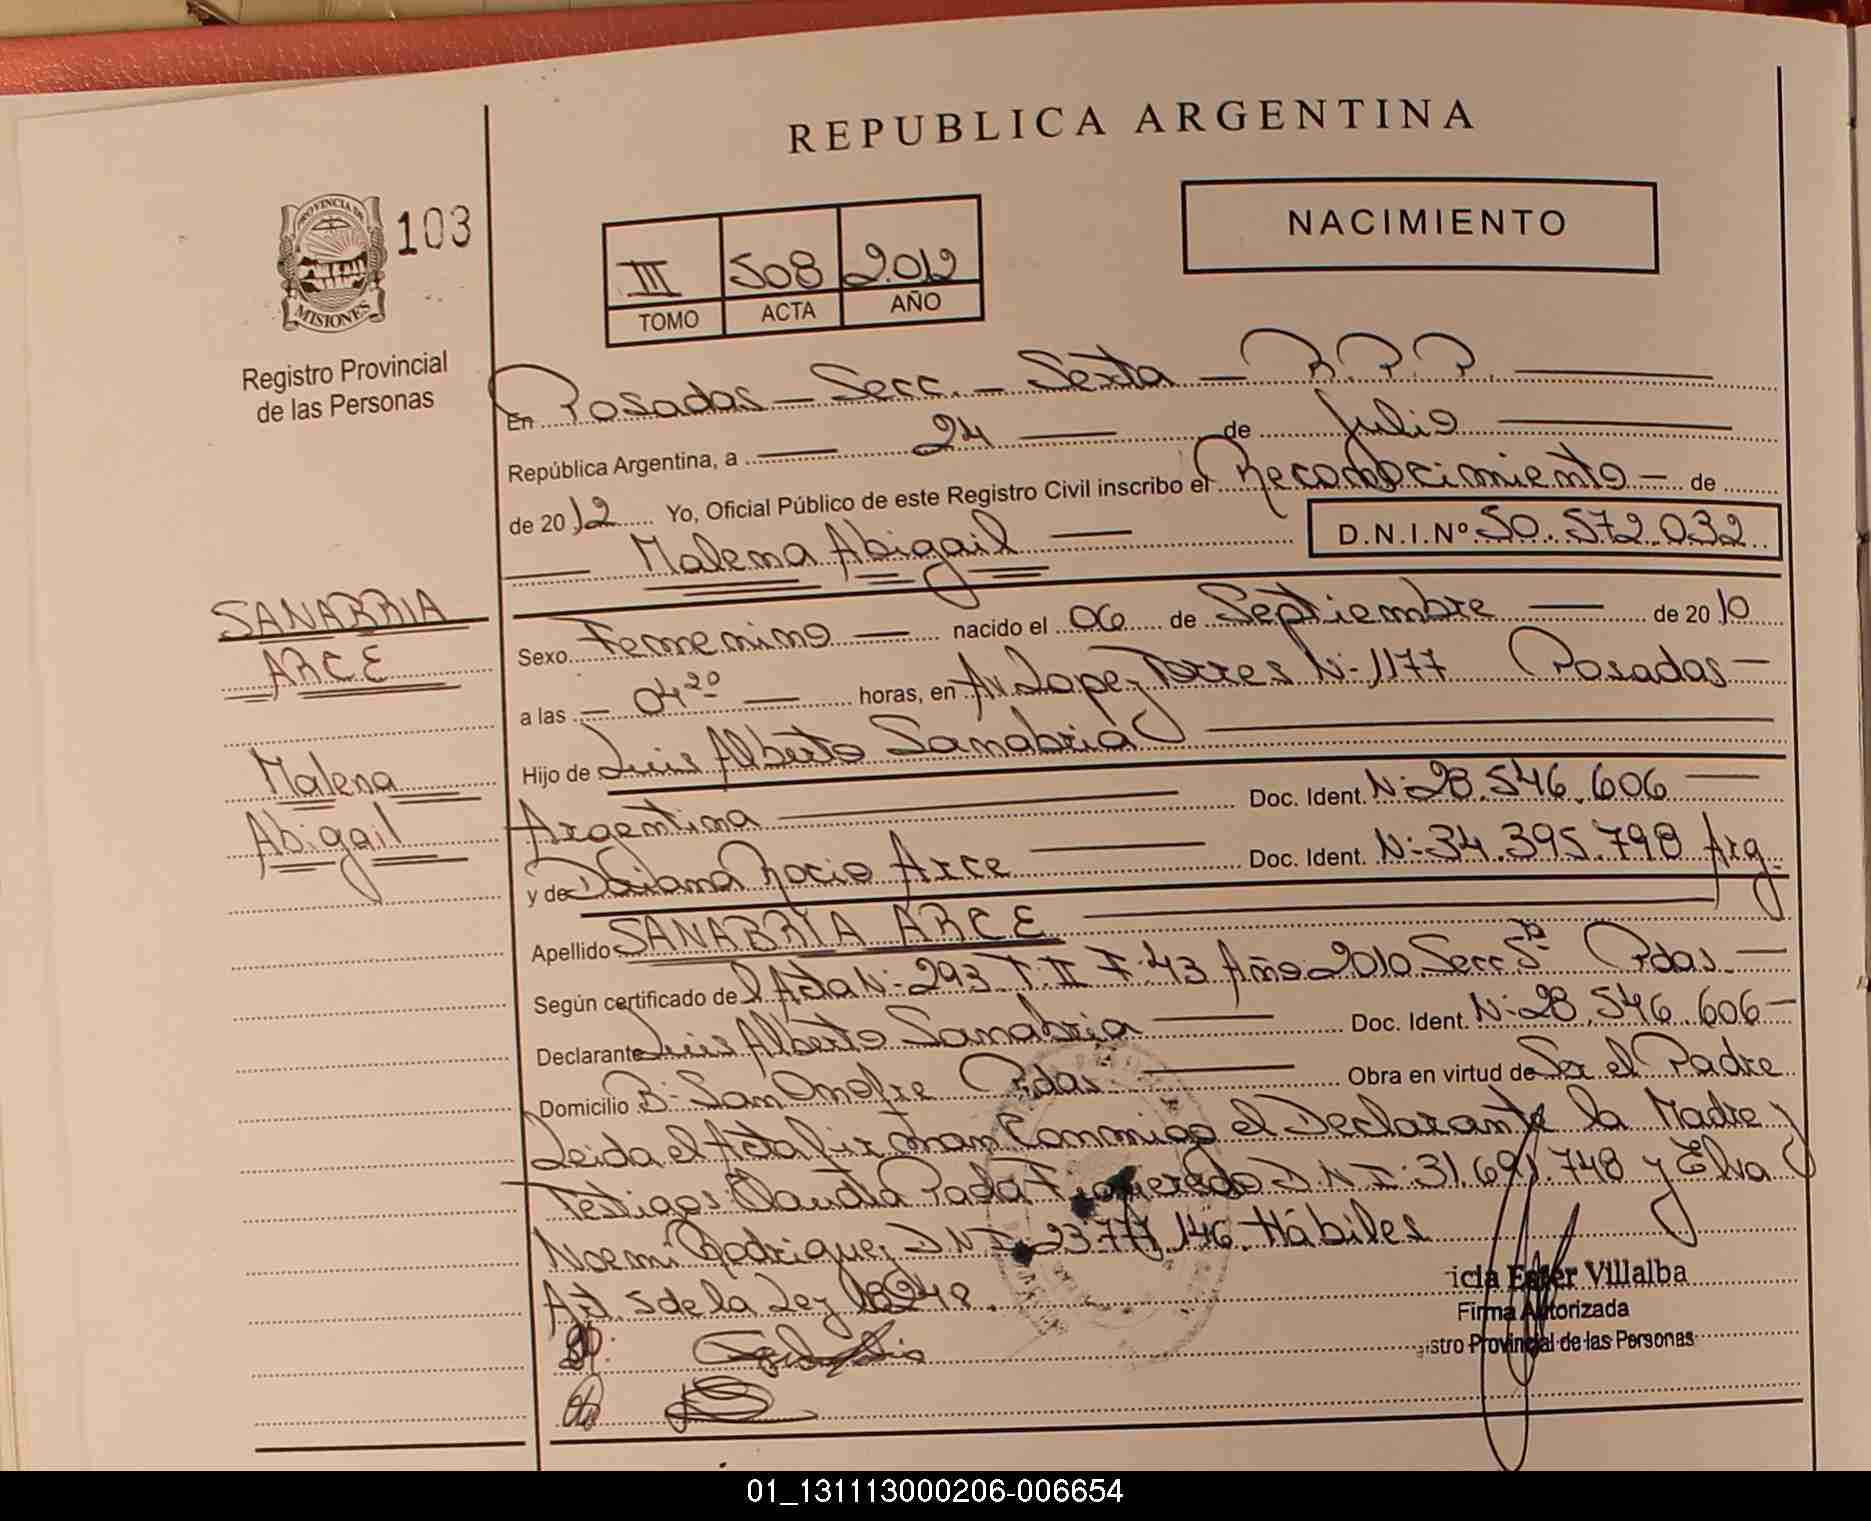 REPUBLICA ARGENTINA
PROVINCIA DE
MISIONES
103
NACIMIENTO
III 508 2.012
TOMO ACTA AÑO
Registro Provincial
de las Personas
En Posadas - Secc. - Sexta - R.P.P.
República Argentina, a 24 de Julio
de 2012 Yo, Oficial Público de este Registro Civil inscribo el Reconocimiento - de
Malena Abigail D.N.I.Nº 50.572.032
SANABRIA
ARCE
Malena
Abigail
Sexo Femenino - nacido el 06 de Septiembre de 2010
a las - 04 20 - horas, en Av. Lopez Torres N-1177 Posadas -
Hijo de Luis Alberto Sanabria
Argentina Doc. Ident. N: 28.546.606
y de Daiana Rocio Arce Doc. Ident. N: 34.395.798 Arg.
Apellido SANABRIA ARCE
Según certificado del Acta N: 293 T: II F: 43 Año 2010 Secc 5ta Pdas. -
Declarante Luis Alberto Sanabria Doc. Ident. N: 28.546.606 -
Domicilio B: San Onofre Pdas. Obra en virtud de Ser el Padre
Leida el Acta firman Conmigo el Declarante la Madre y
Testigos: Claudia Figueredo D.N.I: 31.691.748 y Elva
Noemi Rodriguez D.N.I: 23.777.146. Hábiles
Art. 5 de la Ley 18248.
icia Ester Villalba
Firma Autorizada
istro Provincial de las Personas
01_131113000206-006654